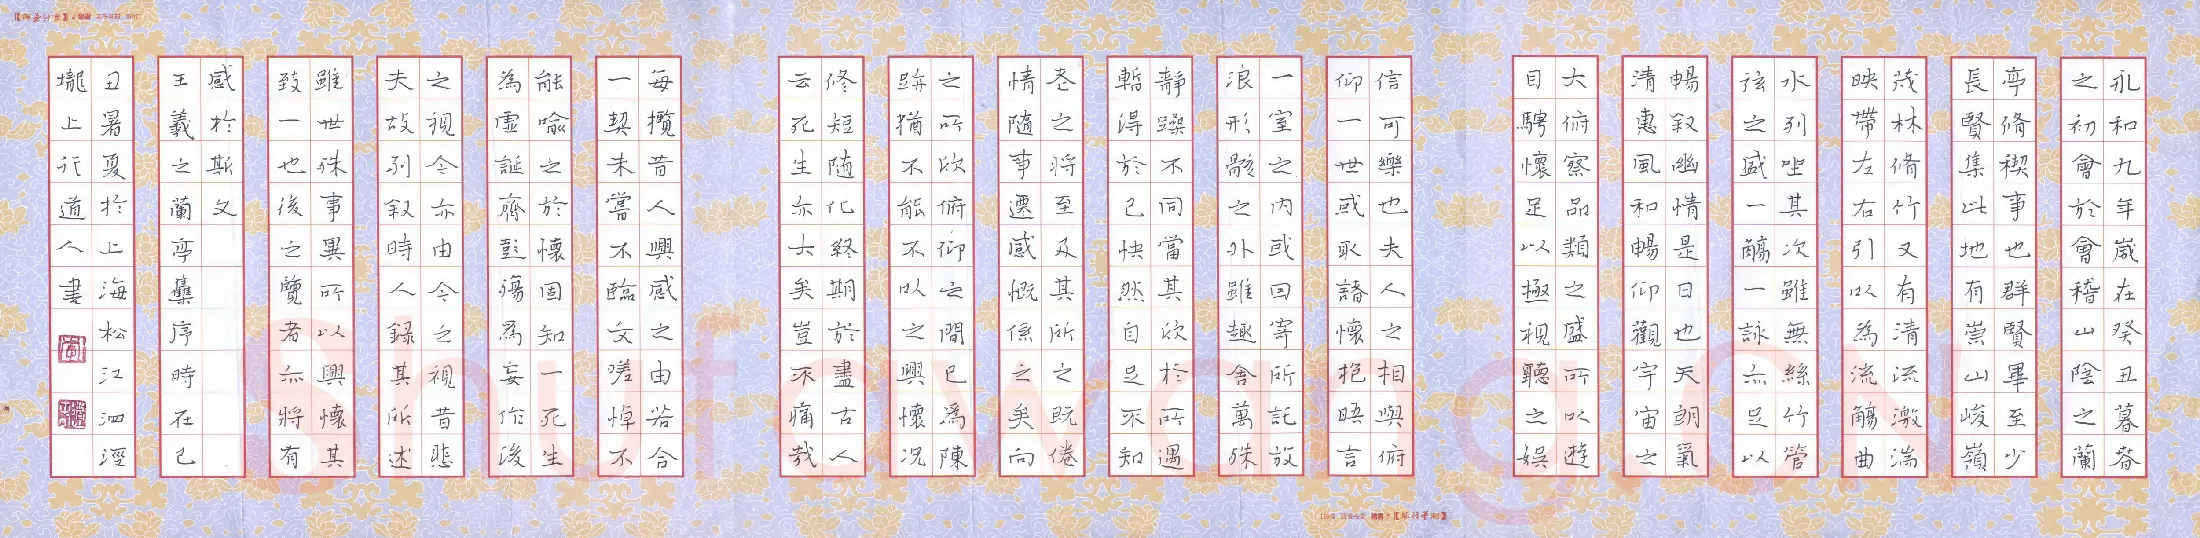 永和九年歲在癸丑暮春
之初會於會稽山陰之蘭
亭脩禊事也群賢畢至少
長賢集此地有崇山峻嶺
茂林脩竹又有清流激湍
映帶左右引以為流觴曲
水列坐其次雖無絲竹管
弦之盛一觴一詠亦足以
暢叙幽情是日也天朗氣
清惠風和暢仰觀宇宙之
大俯察品類之盛所以遊
目騁懷足以極視聽之娛
信可樂也夫人之相與俯
仰一世或取諸懷抱晤言
一室之内或因寄所託放
浪形骸之外雖趣舍萬殊
靜躁不同當其欣於所遇
暫得於己快然自足不知
老之將至及其所之既倦
情隨事遷感慨係之矣向
之所欣俯仰之間已為陳
跡猶不能不以之興懷況
修短隨化終期於盡古人
云死生亦大矣豈不痛哉
每攬昔人興感之由若合
一契未嘗不臨文嗟悼不
能喻之於懷固知一死生
為虛誕齊彭殤為妄作後
之視今亦由今之視昔悲
夫故列叙時人錄其所述
雖世殊事異所以興懷其
致一也後之覽者亦將有
感於斯文
王羲之蘭亭集序時在己
丑暑夏於上海松江泗涇
壠上行道人書
Shufawang.CN